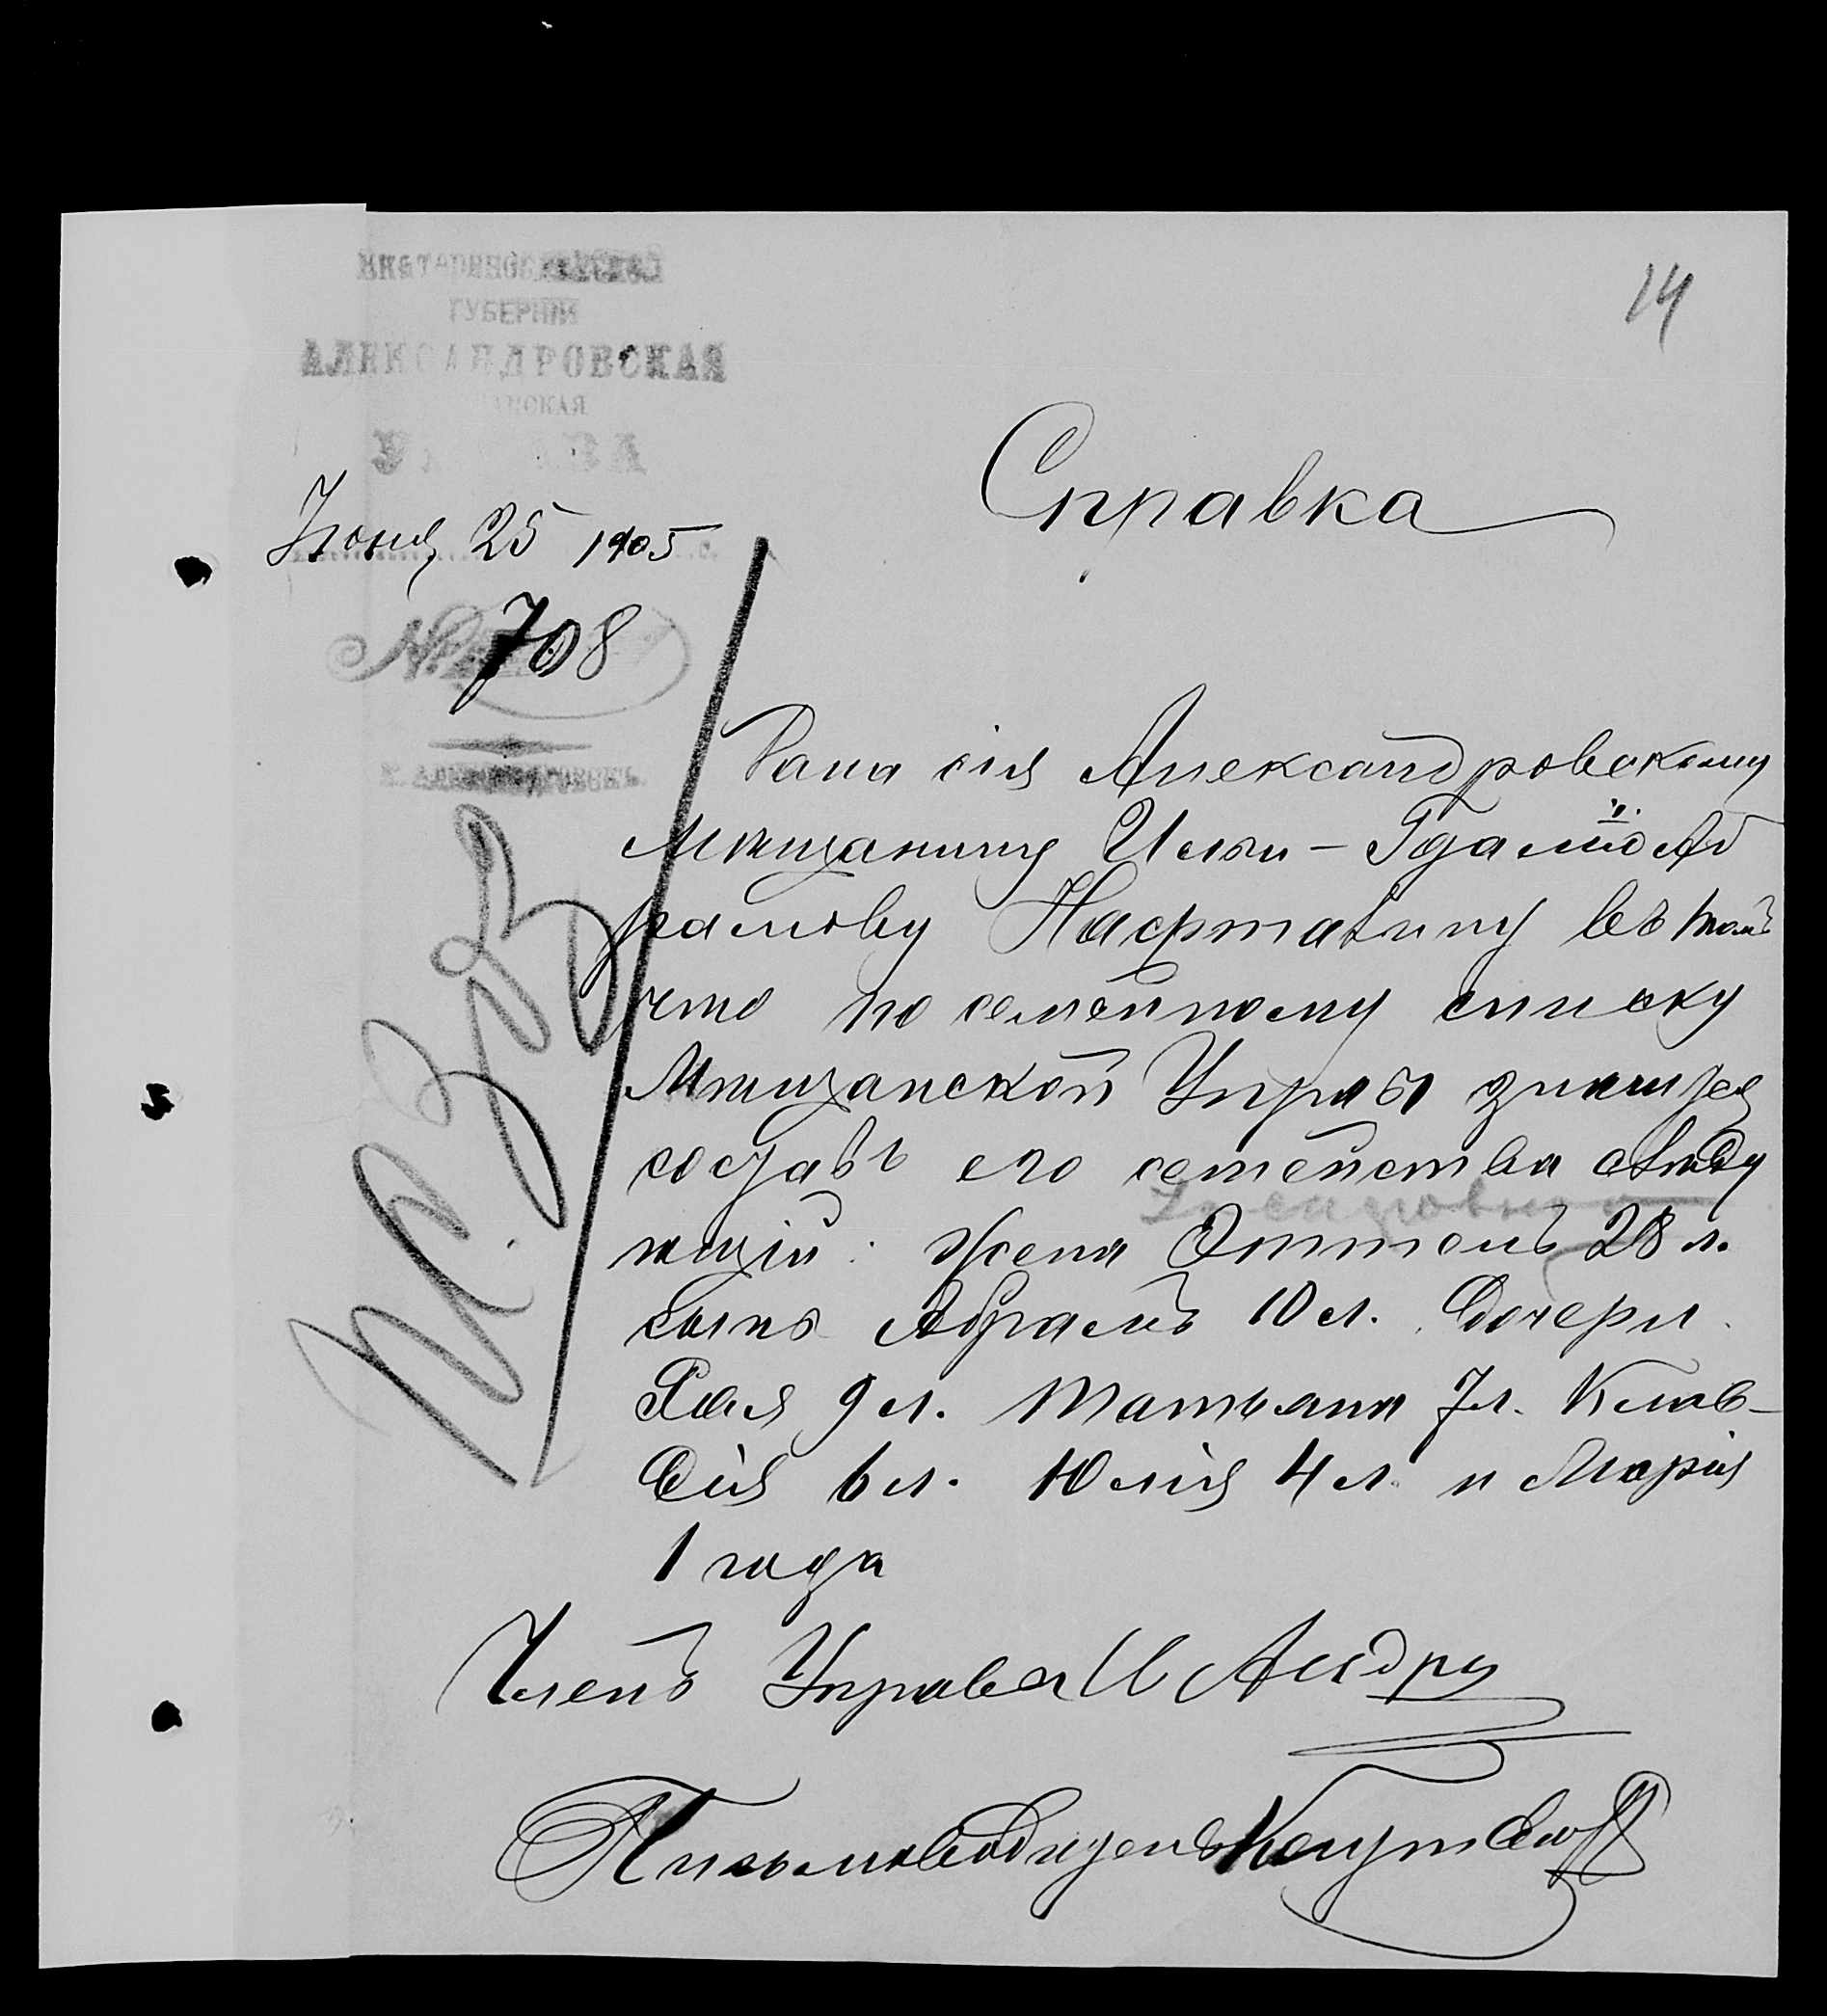 14
ЕКАТЕРИНОСЛАВСКОЙ
ГУБЕРНІИ
АЛЕКСАНДРОВСКАЯ
УПРАВА
Іюня 25 1905
№ 708
Г. АЛЕКСАНДРОВСКЪ.
Справка
Дана сія Александровскому
Мѣщанину Илѣи-Гдалію Аб
рамову Нафтавину въ томъ
что по семейному списку
Мѣщанской Управы значится
составъ его семейства слѣду
ющій: жена Эттель 28 л.
сынъ Абрамъ 10 л. Дочери
Хая 9 л. Татьяна 7 л. Клав-
дія 6 л. Юлія 4 л. и Марія
1 года
Членъ Управы
Письмоводитель